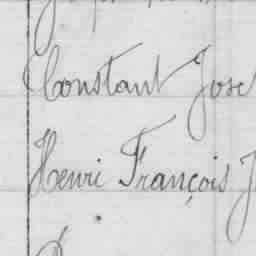 Constant Jose
Henri François J